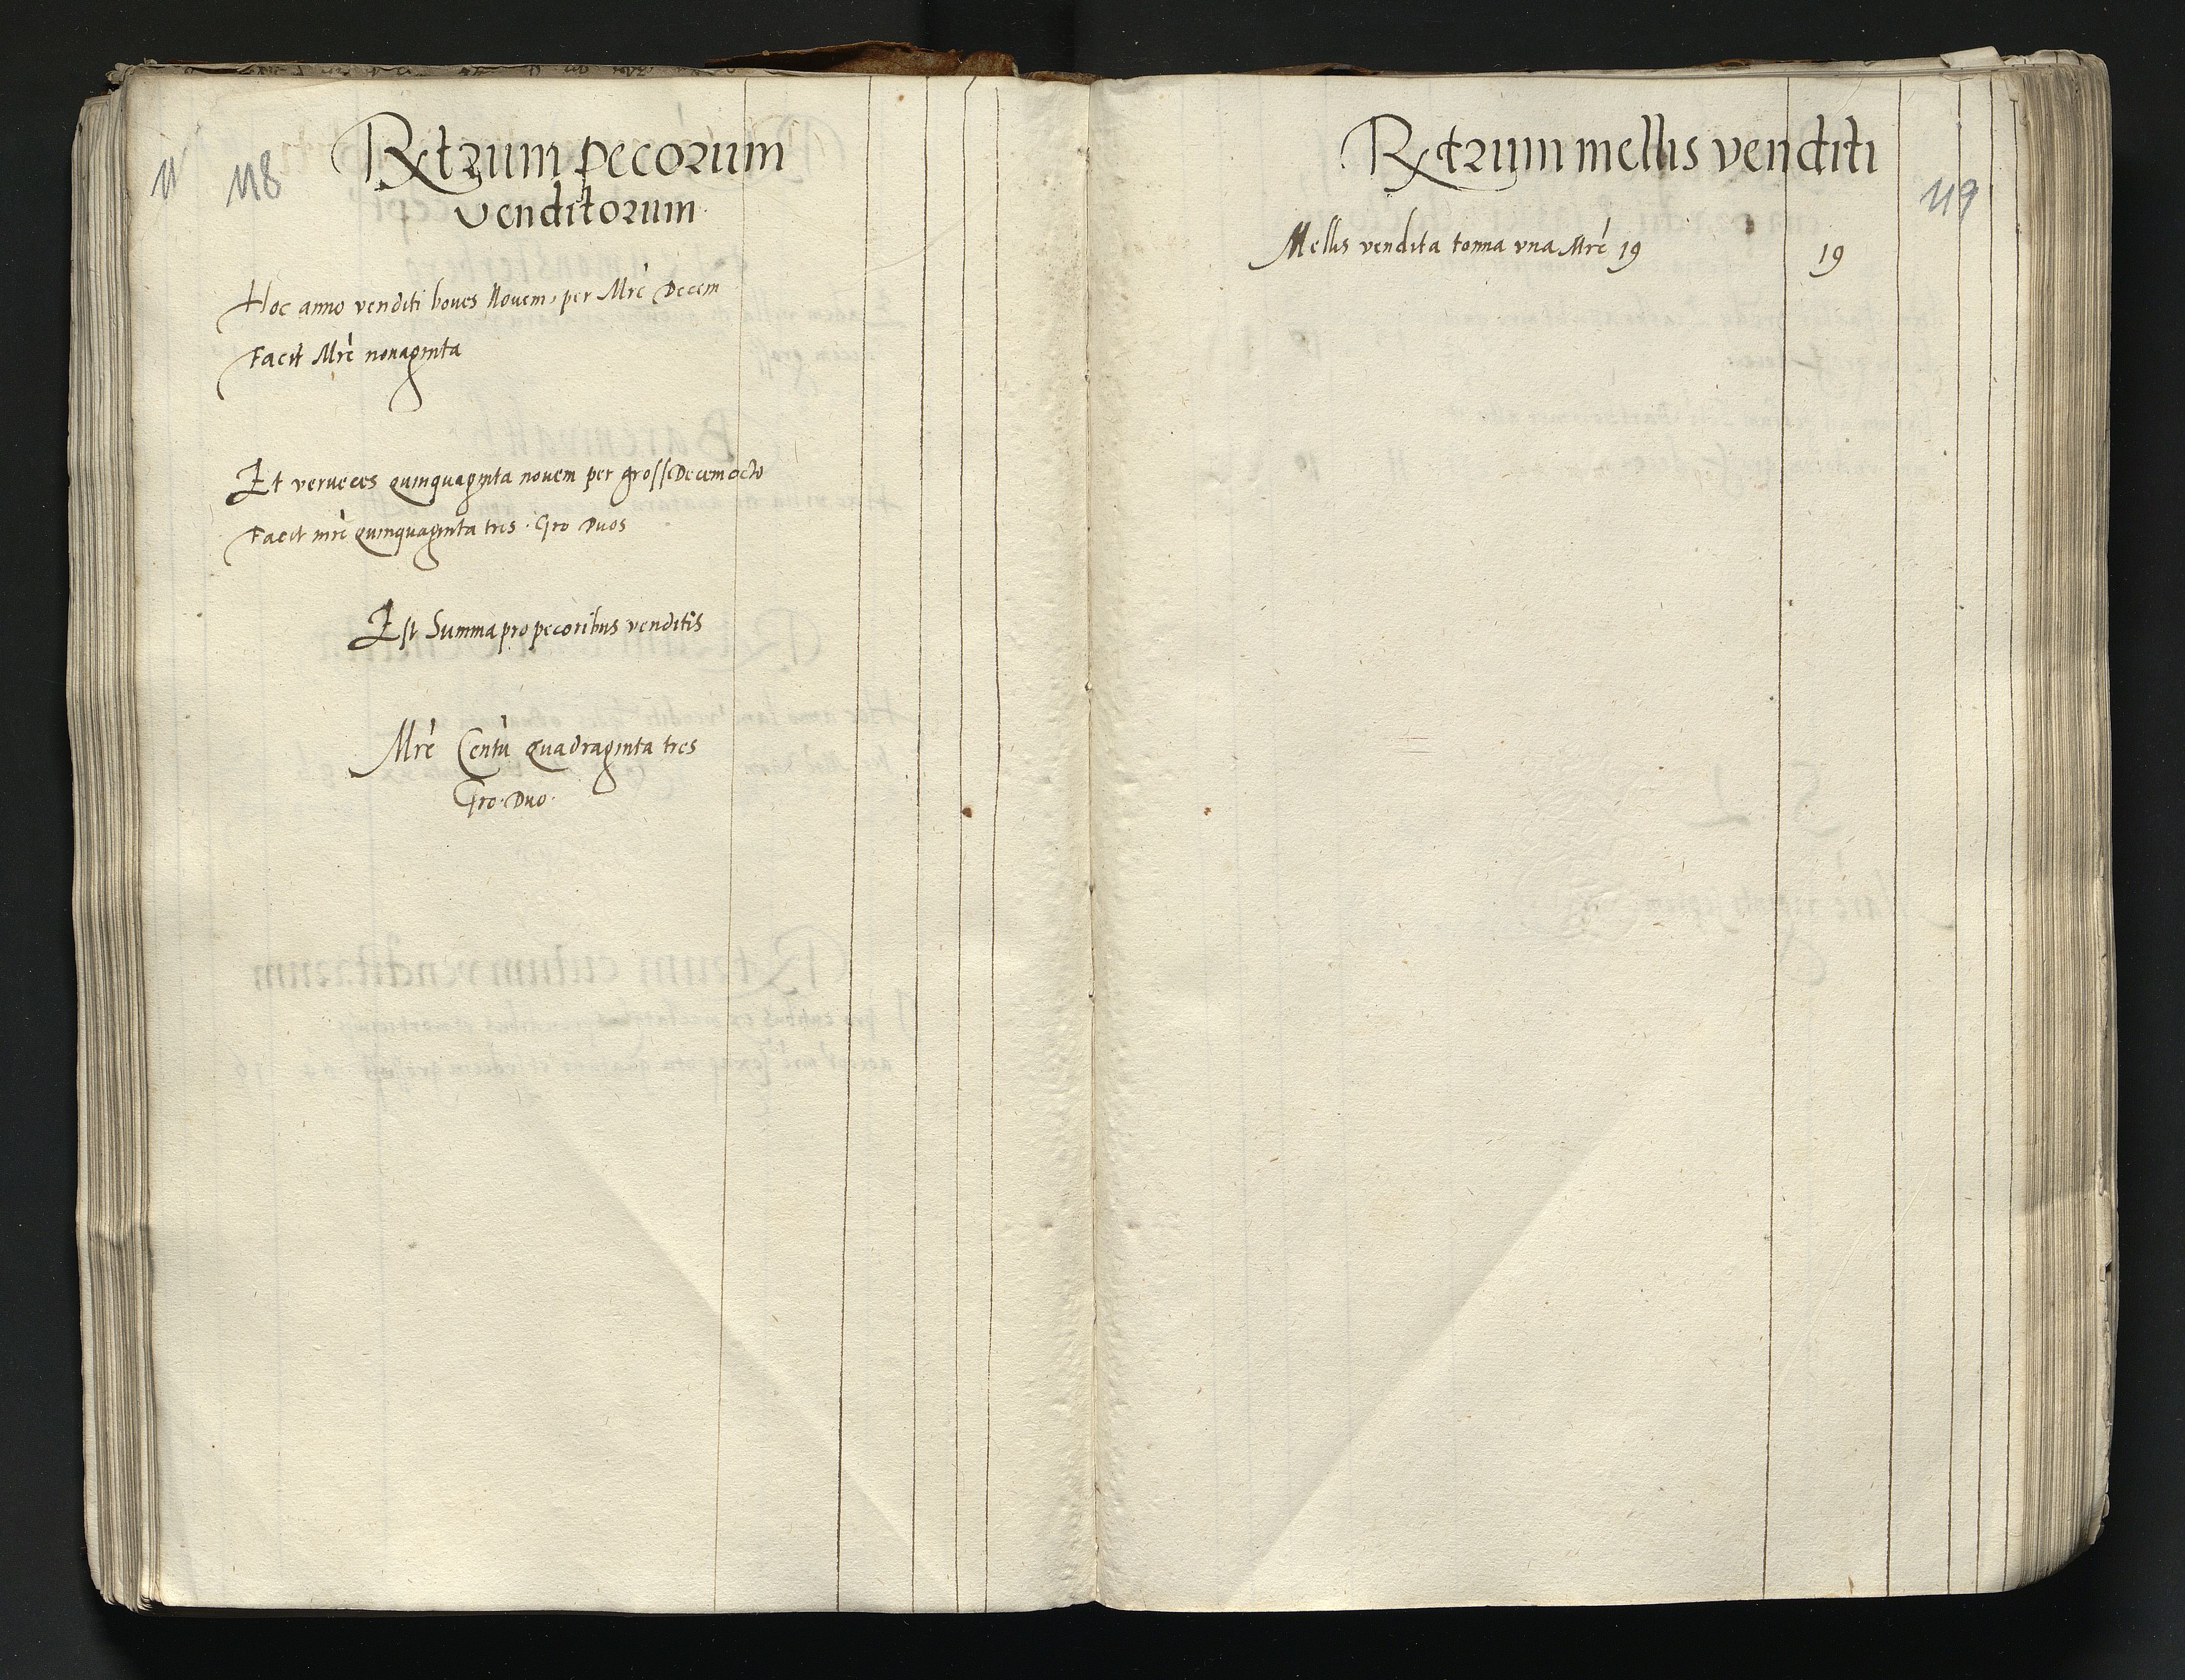 11 118
Rxtrum pecorum
venditorum
Hoc anno venditi boues Nouem, per Mrc Decem
Facit Mrc nonaginta
Et verueces quinquaginta nouem per gross Decem octo
Facit mrc quinquaginta tres . Gro Duos
Est Summa pro pecoribus venditis
Mrc Centu quadraginta tres
Gro . Duo .
Rxtrum mellis venditi
119
Mellis vendita tonna vna Mrc 19 19